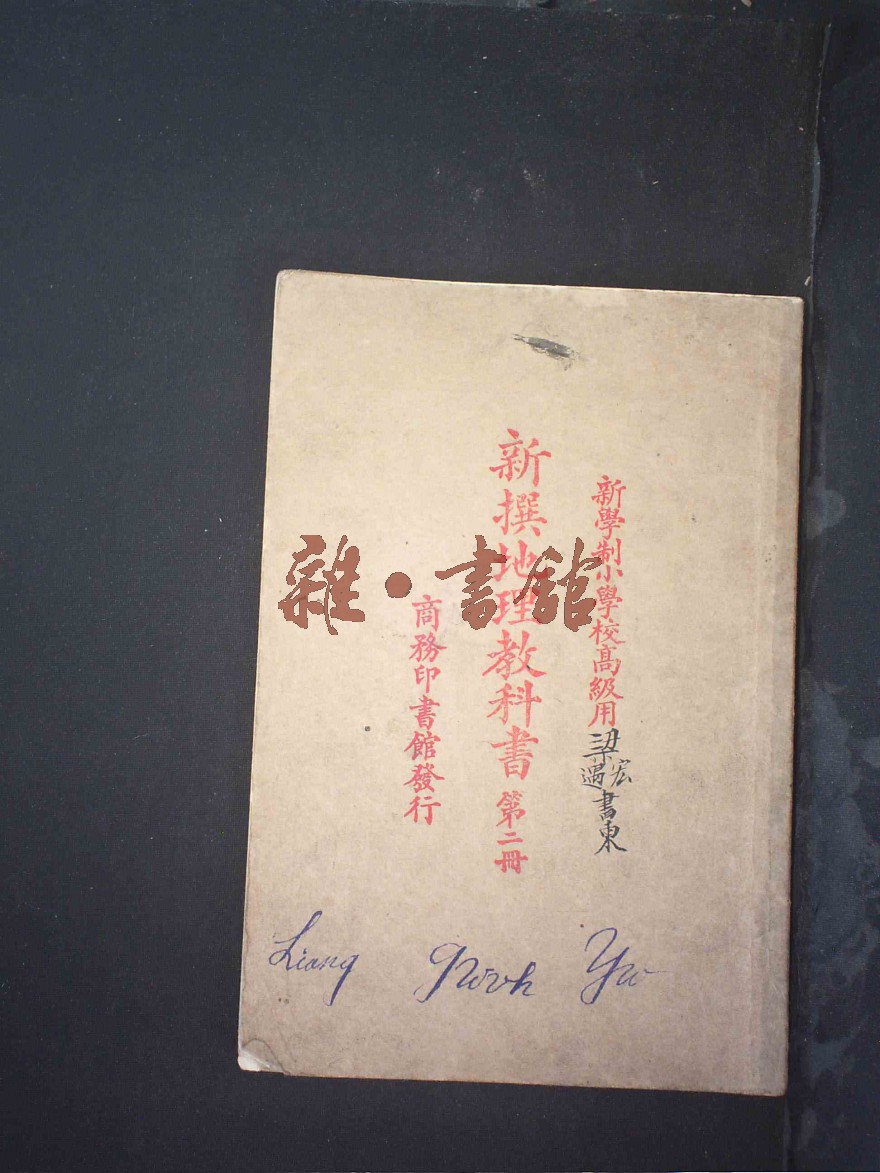 新學制小學校高級用
梁宏遇書東
新撰地理教科書 第二冊
商務印書館發行
雜·書館
Liang
Yu